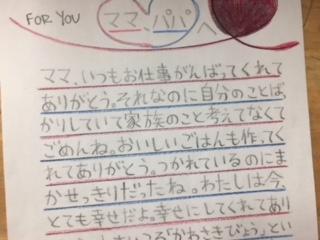 FOR YOU
ママ、パパへ
ママ、いつもお仕事がんばってくれて
ありがとう。それなのに自分のことば
かりしていて家族のこと考えてなくて
ごめんね。おいしいごはんも作ってく
れてありがとう。つかれているのにま
かせっきりだったね。わたしは今、
とても幸せだよ。幸せにしてくれてあり
「かわさきびょう」とい